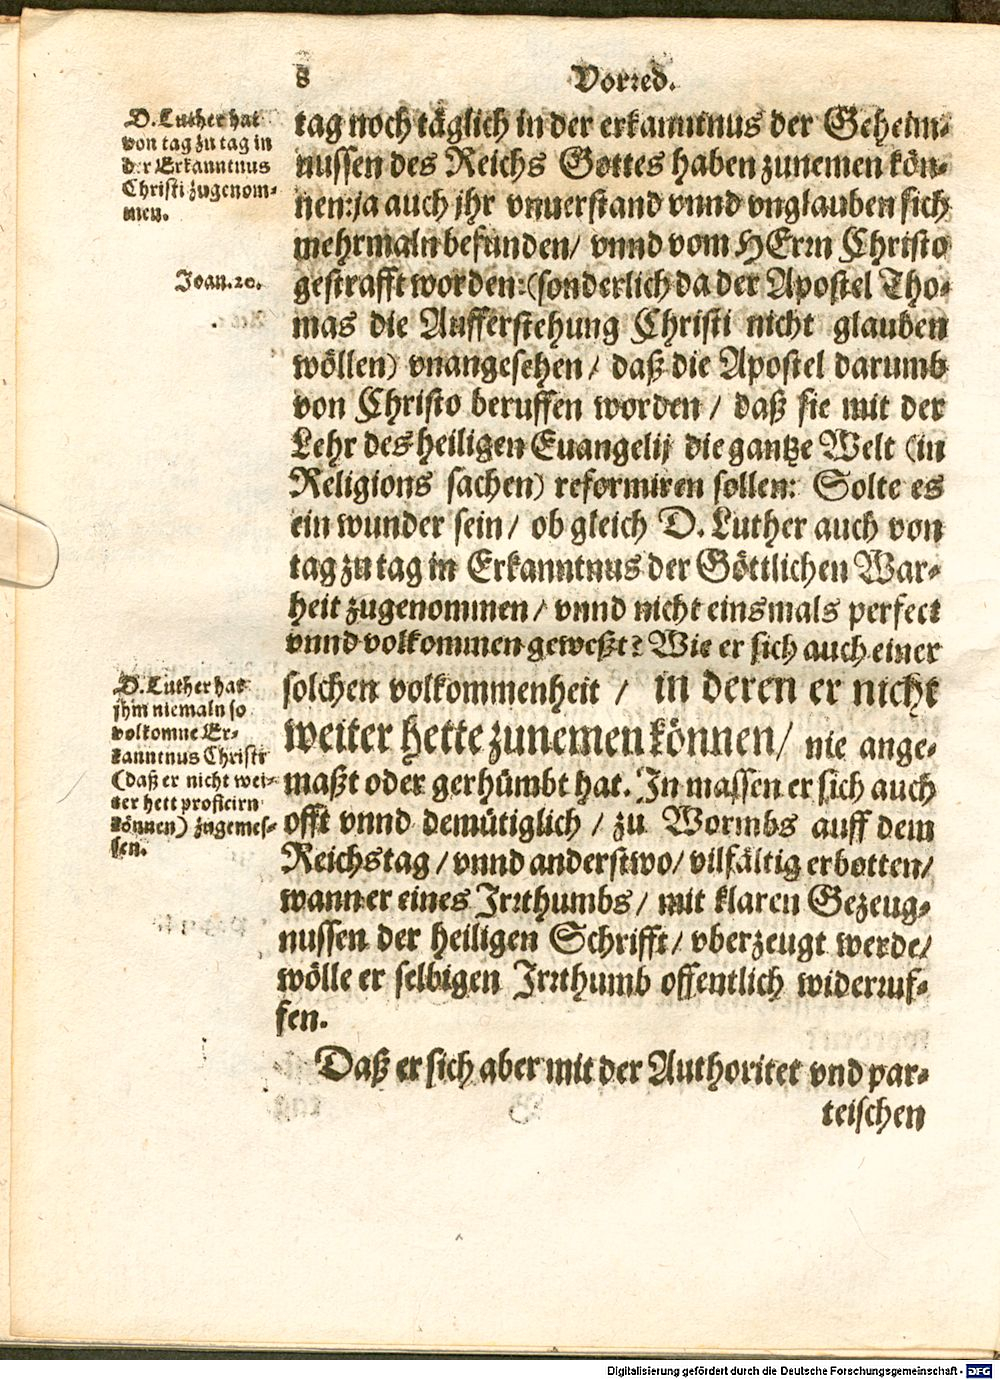 8
Vorred.
D. Luther hat
von tag zu tag in
der Erkanntnus
Christi zugenom-
men.
Joan.20.
tag noch täglich in der erkanntnus der Geheim-
nussen des Reichs Gottes haben zunemen kön-
nen: ja auch jhr vnuerstand vnnd vnglauben sich
mehrmaln befunden/ vnnd vom HErrn Christo
gestrafft worden: (sonderlich da der Apostel Tho-
mas die Aufferstehung Christi nicht glauben
wöllen) vnangesehen/ daß die Apostel darumb
von Christo beruffen worden/ daß sie mit der
Lehr des heiligen Euangelij die gantze Welt (in
Religions sachen) reformiren sollen: Solte es
ein wunder sein/ ob gleich D. Luther auch von
tag zu tag in Erkanntnus der Göttlichen War-
heit zugenommen/ vnnd nicht einsmals perfect
vnnd volkommen geweßt? Wie er sich auch einer
solchen volkommenheit/ in deren er nicht
weiter hette zunemen können/ nie ange-
maßt oder gerhümbt hat. In massen er sich auch
offt vnnd demütiglich/ zu Wormbs auff dem
Reichstag/ vnnd anderstwo/ vilfältig erbotten/
wann er eines Irrthumbs/ mit klaren Gezeug-
nussen der heiligen Schrifft/ vberzeugt werde/
wölle er selbigen Irrthumb offentlich widerruf-
fen.
D. Luther hat
jhm niemaln so
volkomne Er-
kanntnus Christi
(daß er nicht wei-
ter hett proficirn
können) zugemes-
sen.
Daß er sich aber mit der Authoritet vnd par-
teischen
Digitalisierung gefördert durch die Deutsche Forschungsgemeinschaft - DFG